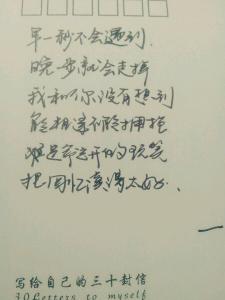 早一秒不会遇到.
晚一步就会走掉
我和你没有想到
能相遇不能拥抱
难道命运开的玩笑
把回忆填满太好.
写给自己的三十封信
30 Letters to myself